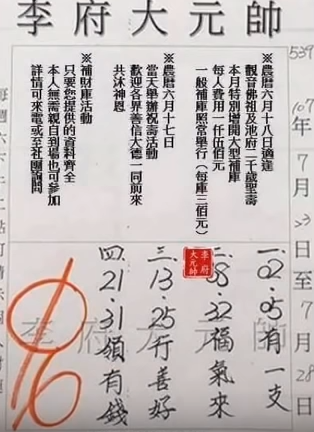 李府大元帥
539
107年7月23日至7月28日
※農曆六月十八日適逢
觀音佛祖及池府二千歲聖壽
本月特別增開大型補庫
每人費用一仟伍佰元
一般補庫照常舉行（每庫三佰元）
※農曆六月十七日
當天舉辦祝壽活動
歡迎各界善信大德一同前來
共沐神恩
※補財庫活動
只要您提供的資料齊全
本人無需親自到場也可參加
詳情可來電或至社團詢問
一.02.05有一支
08.32福氣來
三.13.25行善好
四.21.31領有錢
李府
大元帥
李府大元帥
16